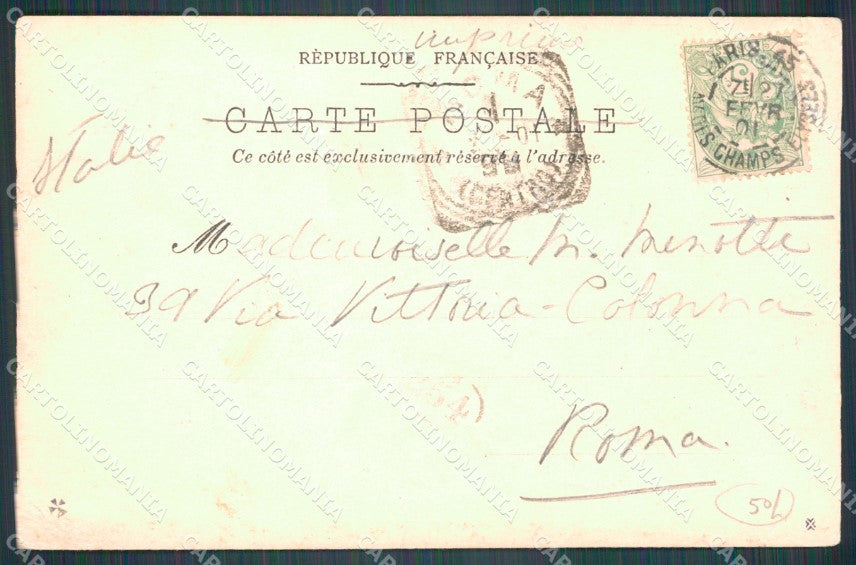 imprimé
RÉPUBLIQUE FRANÇAISE
CARTE POSTALE
Ce côté est exclusivement réservé à l'adresse.
Italie
ROMA
(CENTRO)
PARIS
7E 27
FEVR
01
CHAMPS
Mademoiselle M. Minotti
39 Via Vittoria-Colonna
Roma.
50
CARTOLINOMANIA